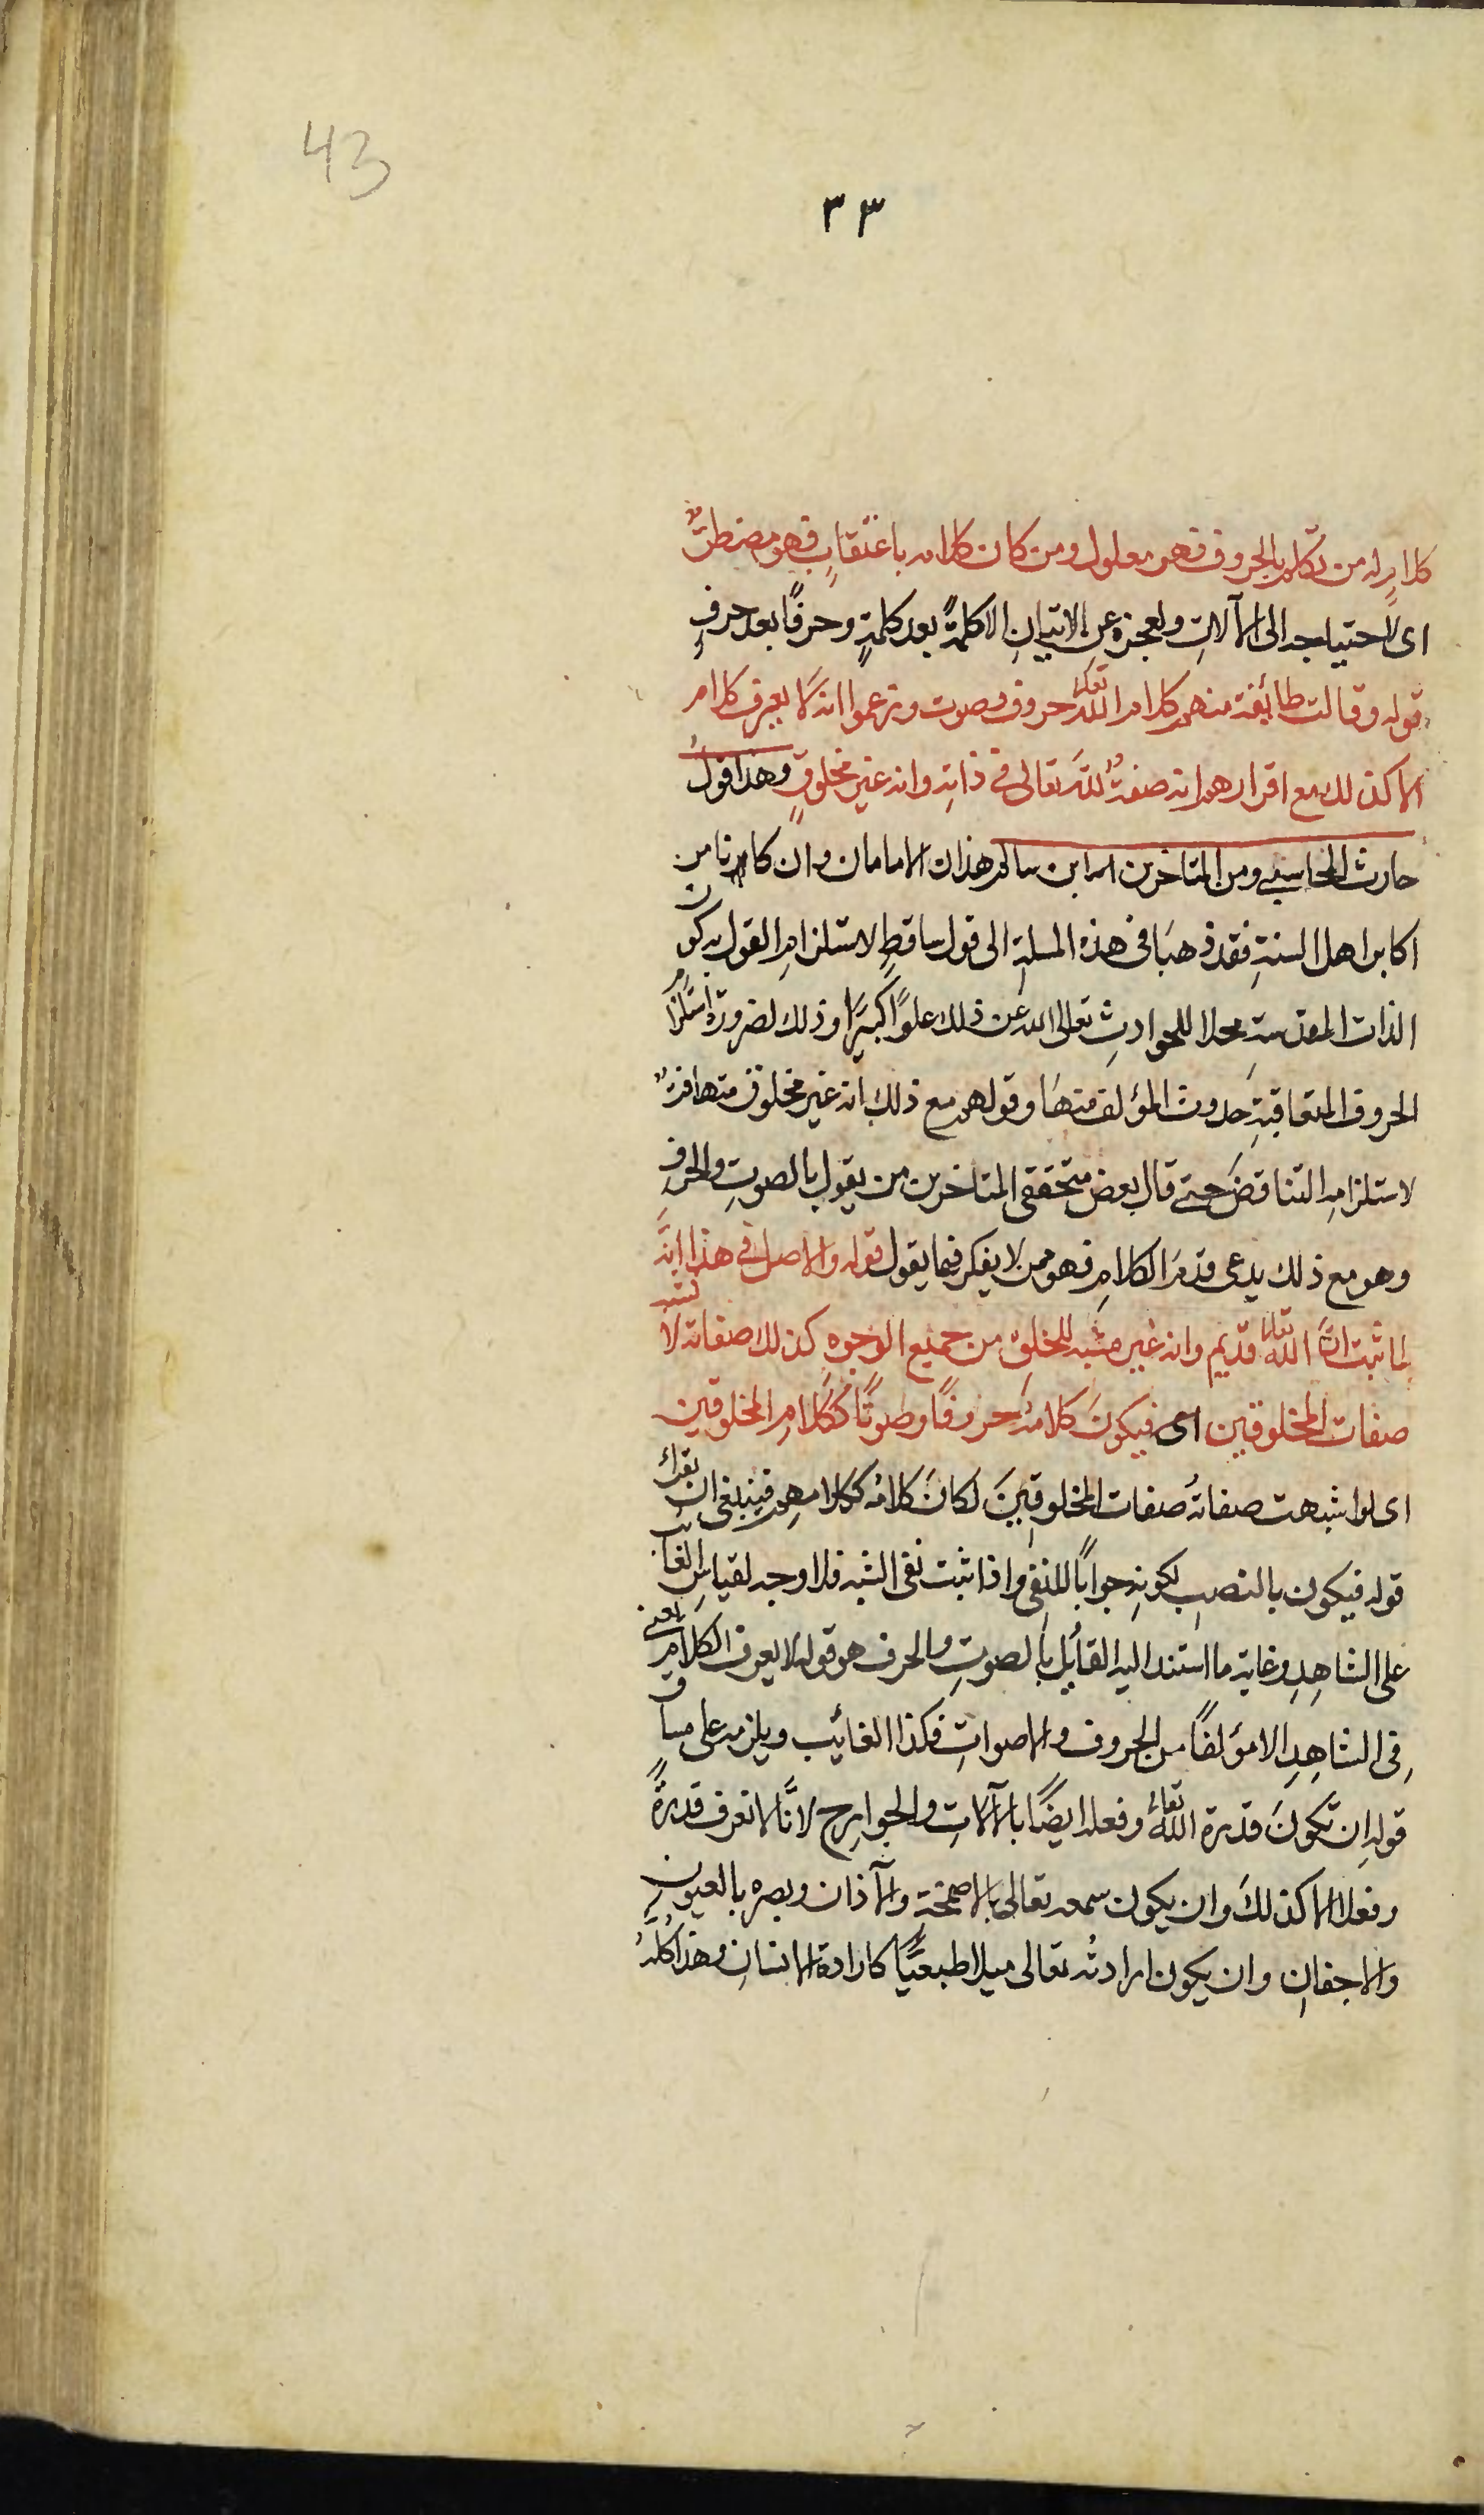 43
٣٣
كلام له من تكلم بالحروف فهو معلول ومن كان كلامه باعتقاب فهو مضطرٌّ
اى لاحتياجه الى الآلات ولعجزه عن الاتيان الا كلمةً بعد كلمةٍ وحرفًا بعد حرفٍ
قوله وقالت طائفة منهم كلام الله تعالى حروف وصوت وزعموا انه لا يعرف كلام
الا كذلك مع اقرارهم انه صفةٌ لله تعالى فى ذاتِه وانه غير مخلوقٍ وهذا قولُ
حارث المحاسبى ومن المتاخرين ابن سالم هذان الامامان وان كانا من
اكابر اهل السنةِ فقد ذهبَا فى هذه المسلة الى قول ساقطٍ لاستلزامِ القول به كون
الذات المقدسةِ محلا للحوادثِ تعالى الله عن ذلك علوًا كبيرًا وذلك لضرورة استلزام
الحروف المتعاقبةِ حدوث المؤلف منهَا وقولهم مع ذلك انه غير مخلوق متهافتٌ
لاستلزامه التناقضَ حتى قال بعض متحققى المتاخرين من يقول بالصوتِ والحرفِ
وهو مع ذلك يدعى قدمَ الكلامِ فهو ممن لا يفكر فيما يقول قوله والاصل فى هذا انَّه
لما ثبت انَّ الله تعالى قديم وانه غير مشبه للخلق من جميع الوجوه كذلك صفاته لا تشبه
صفات المخلوقين اى فيكونَ كلامُه حروفًا وصوتًا ككلامِ المخلوقين
اى لو اشبهت صفاتُه صفات المخلوقِينَ لكانَ كلامُه ككلامِهم فينبغى ان يقراء
قوله فيكون بالنصبِ لكونِه جوابًا للنفى واذا ثبت نفى الشبه فلا وجه لقياسِ الغائب
على الشاهِدِ وغاية ما استند اليه القائل بالصوتِ والحرف هو قوله لا يعرف الكلام يعنى
فى الشاهِدِ الا مؤلفًا من الحروف والاصواتِ فكذا الغائب ويلزمه على مساق
قوله ان تكونَ قدرة الله تعالى وفعله ايضًا بالآلاتِ والجوارح لانَّا لا نعرف قدرةً
وفعلا الا كذلكَ وان يكون سمعه تعالى بالاصمخةِ والآذان وبصره بالعيونِ
والاجفان وان يكون ارادتُه تعالى ميلا طبيعيًّا كارادة الانسانِ وهذا كلُّهُ